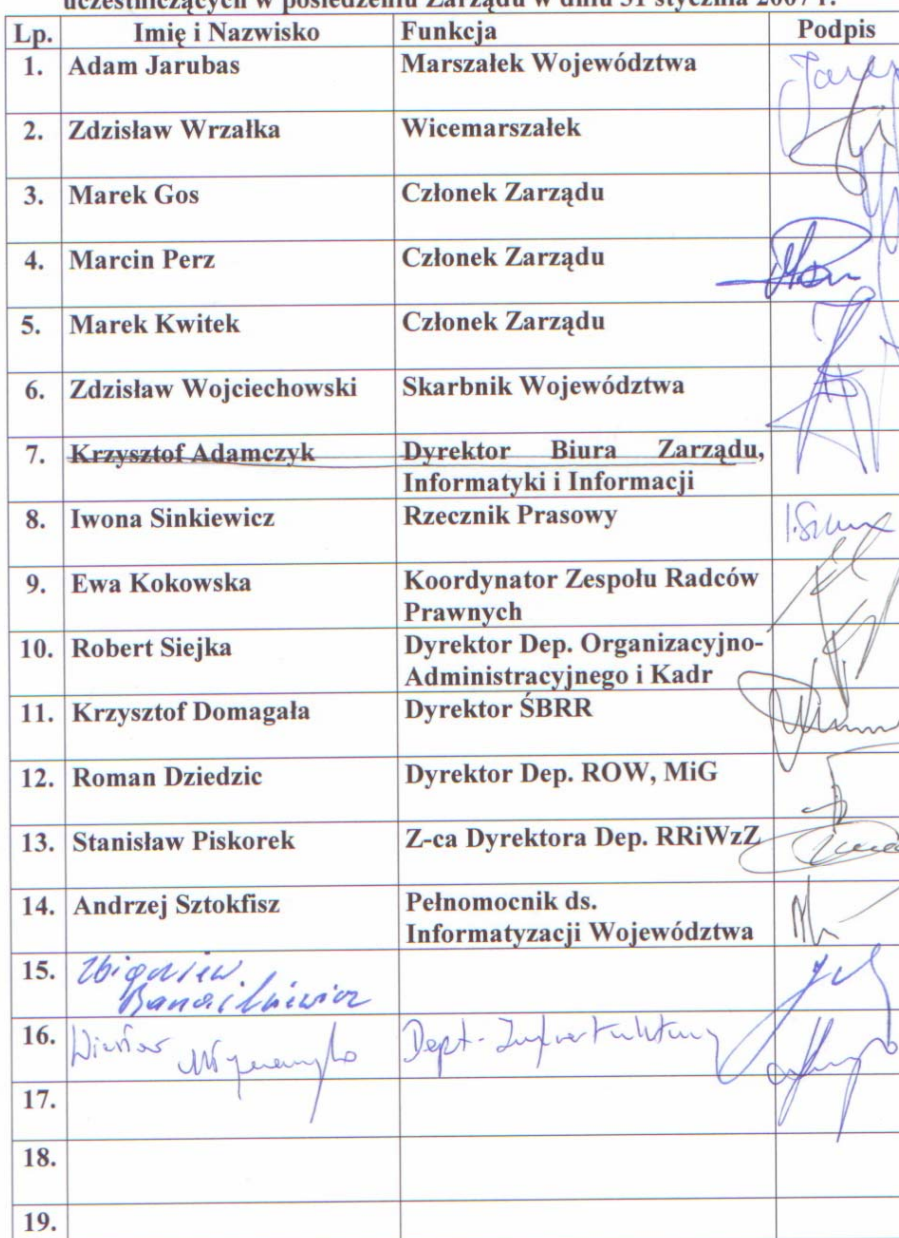 uczestniczących w posiedzeniu Zarządu w dniu 31 stycznia 2007 r.
Lp. Imię i Nazwisko Funkcja Podpis
1. Adam Jarubas Marszałek Województwa
2. Zdzisław Wrzałka Wicemarszałek
3. Marek Gos Członek Zarządu
4. Marcin Perz Członek Zarządu
5. Marek Kwitek Członek Zarządu
6. Zdzisław Wojciechowski Skarbnik Województwa
7. Krzysztof Adamczyk Dyrektor Biura Zarządu,
Informatyki i Informacji
8. Iwona Sinkiewicz Rzecznik Prasowy
9. Ewa Kokowska Koordynator Zespołu Radców
Prawnych
10. Robert Siejka Dyrektor Dep. Organizacyjno-
Administracyjnego i Kadr
11. Krzysztof Domagała Dyrektor ŚBRR
12. Roman Dziedzic Dyrektor Dep. ROW, MiG
13. Stanisław Piskorek Z-ca Dyrektora Dep. RRiWzZ
14. Andrzej Sztokfisz Pełnomocnik ds.
Informatyzacji Województwa
15. Zbigniew
16. Dept. Infrastruktury
17.
18.
19.